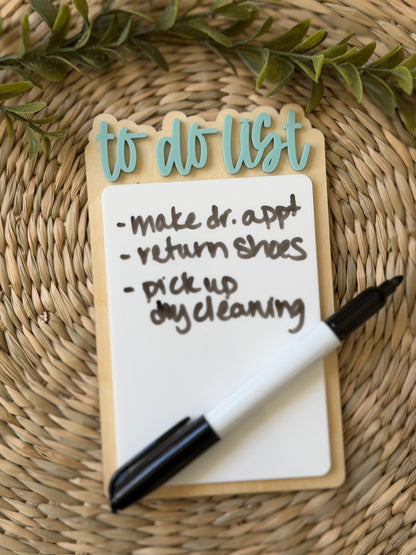 to do list
- make dr. appt
- return shoes
- pick up
dry cleaning